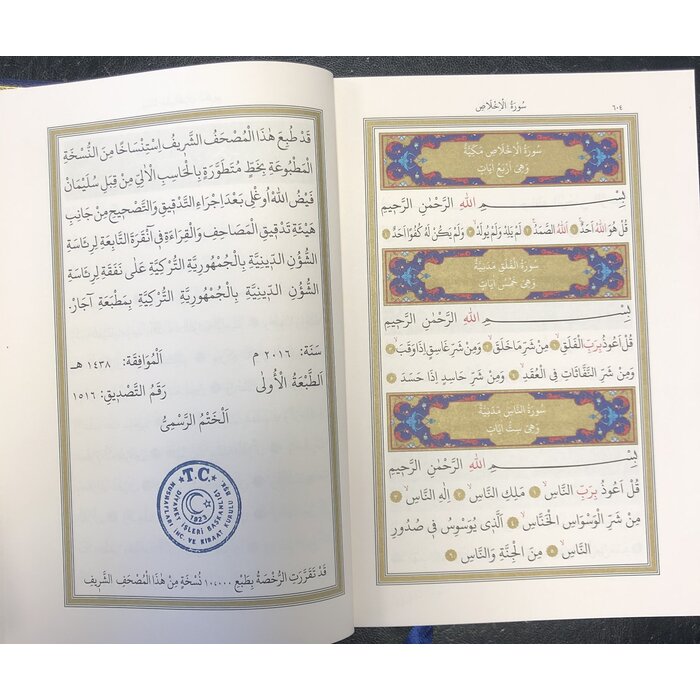 سُورَةُ الْاِخْلَاصِ
٦٠٤
سُورَةُ الْاِخْلَاصِ مَكِّيَّةٌ
وَهِىَ اَرْبَعُ اٰيَاتٍ
بِسْمِ اللّٰهِ الرَّحْمٰنِ الرَّحٖيمِ
قُلْ هُوَ اللّٰهُ اَحَدٌۚ ١ اَللّٰهُ الصَّمَدُۚ ٢ لَمْ يَلِدْ وَلَمْ يُولَدْۙ ٣ وَلَمْ يَكُنْ لَهُ كُفُوًا اَحَدٌ ٤
سُورَةُ الْفَلَقِ مَدَنِيَّةٌ
وَهِىَ خَمْسُ اٰيَاتٍ
بِسْمِ اللّٰهِ الرَّحْمٰنِ الرَّحٖيمِ
قُلْ اَعُوذُ بِرَبِّ الْفَلَقِۙ ١ مِنْ شَرِّ مَا خَلَقَۙ ٢ وَمِنْ شَرِّ غَاسِقٍ اِذَا وَقَبَۙ ٣
وَمِنْ شَرِّ النَّفَّاثَاتِ فِى الْعُقَدِۙ ٤ وَمِنْ شَرِّ حَاسِدٍ اِذَا حَسَدَ ٥
سُورَةُ النَّاسِ مَدَنِيَّةٌ
وَهِىَ سِتُّ اٰيَاتٍ
بِسْمِ اللّٰهِ الرَّحْمٰنِ الرَّحٖيمِ
قُلْ اَعُوذُ بِرَبِّ النَّاسِۙ ١ مَلِكِ النَّاسِۙ ٢ اِلٰهِ النَّاسِۙ ٣
مِنْ شَرِّ الْوَسْوَاسِ الْخَنَّاسِۙ ٤ اَلَّذٖى يُوَسْوِسُ فٖى صُدُورِ
النَّاسِۙ ٥ مِنَ الْجِنَّةِ وَالنَّاسِ ٦
قَدْ طُبِعَ هٰذَا الْمُصْحَفُ الشَّرٖيفُ اِسْتِنْسَاخًا مِنَ النُّسْخَةِ
الْمَطْبُوعَةِ بِخَطٍّ مُتَطَوِّرَةٍ بِالْحَاسِبِ الْاٰلِىِّ مِنْ قِبَلِ سُلَيْمَان
فَيْضُ اللّٰه اُوغْلِى بَعْدَ اِجْرَاءِ التَّدْقٖيقِ وَالتَّصْحٖيحِ مِنْ جَانِبِ
هَيْئَةِ تَدْقٖيقِ الْمَصَاحِفِ وَالْقِرَاءَةِ فٖى اَنْقَرَةَ التَّابِعَةِ لِرِئَاسَةِ
الشُّؤُنِ الدّٖينِيَّةِ بِالْجُمْهُورِيَّةِ التُّرْكِيَّةِ عَلٰى نَفَقَةِ لِرِئَاسَةِ
الشُّؤُنِ الدّٖينِيَّةِ بِالْجُمْهُورِيَّةِ التُّرْكِيَّةِ بِمَطْبَعَةِ آجَارْ.
سَنَة: ٢٠١٦ م اَلْمُوَافِقَة: ١٤٣٨ هـ
اَلطَّبْعَةُ الْأُولٰى رَقْمُ التَّصْدٖيقِ: ١٥١٦
اَلْخَتْمُ الرَّسْمِىُّ
T.C.
DİYANET İŞLERİ BAŞKANLIĞI
MUSHAFLARI İNC. VE KIRAAT KURULU BŞK.
1923
قَدْ تَقَرَّرَتِ الرُّخْصَةُ بِطَبْعِ ١٠٤٠٠٠ نُسْخَةٍ مِنْ هٰذَا الْمُصْحَفِ الشَّرٖيفِ